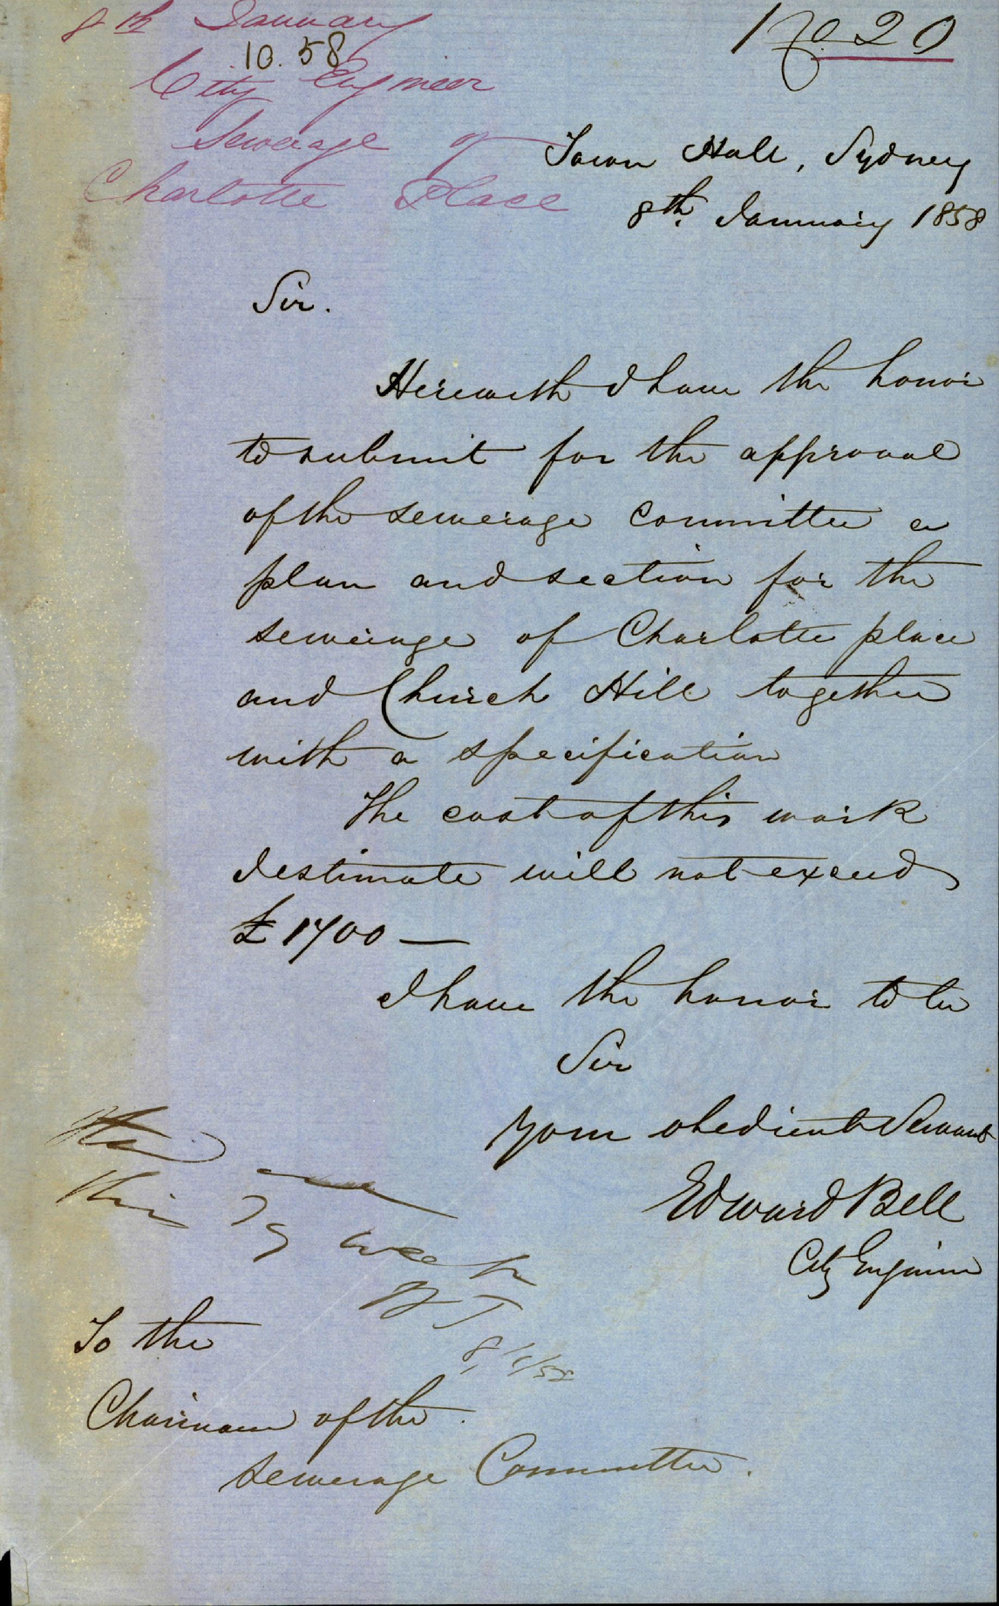 8th January
10.58
City Engineer
Sewerage of
Charlotte Place
No. 20
Town Hall, Sydney
8th. January 1858
Sir.
Herewith I have the honor
to submit for the approval
of the sewerage committee a
plan and section for the
sewerage of Charlotte place
and Church Hill together
with a specification
The cost of this work
I estimate will not exceed
£1700 —
I have the honor to be
Sir
Your obedient Servant
Edward Bell
City Engineer
this
8/1/58
To the
Chairman of the
Sewerage Committee.